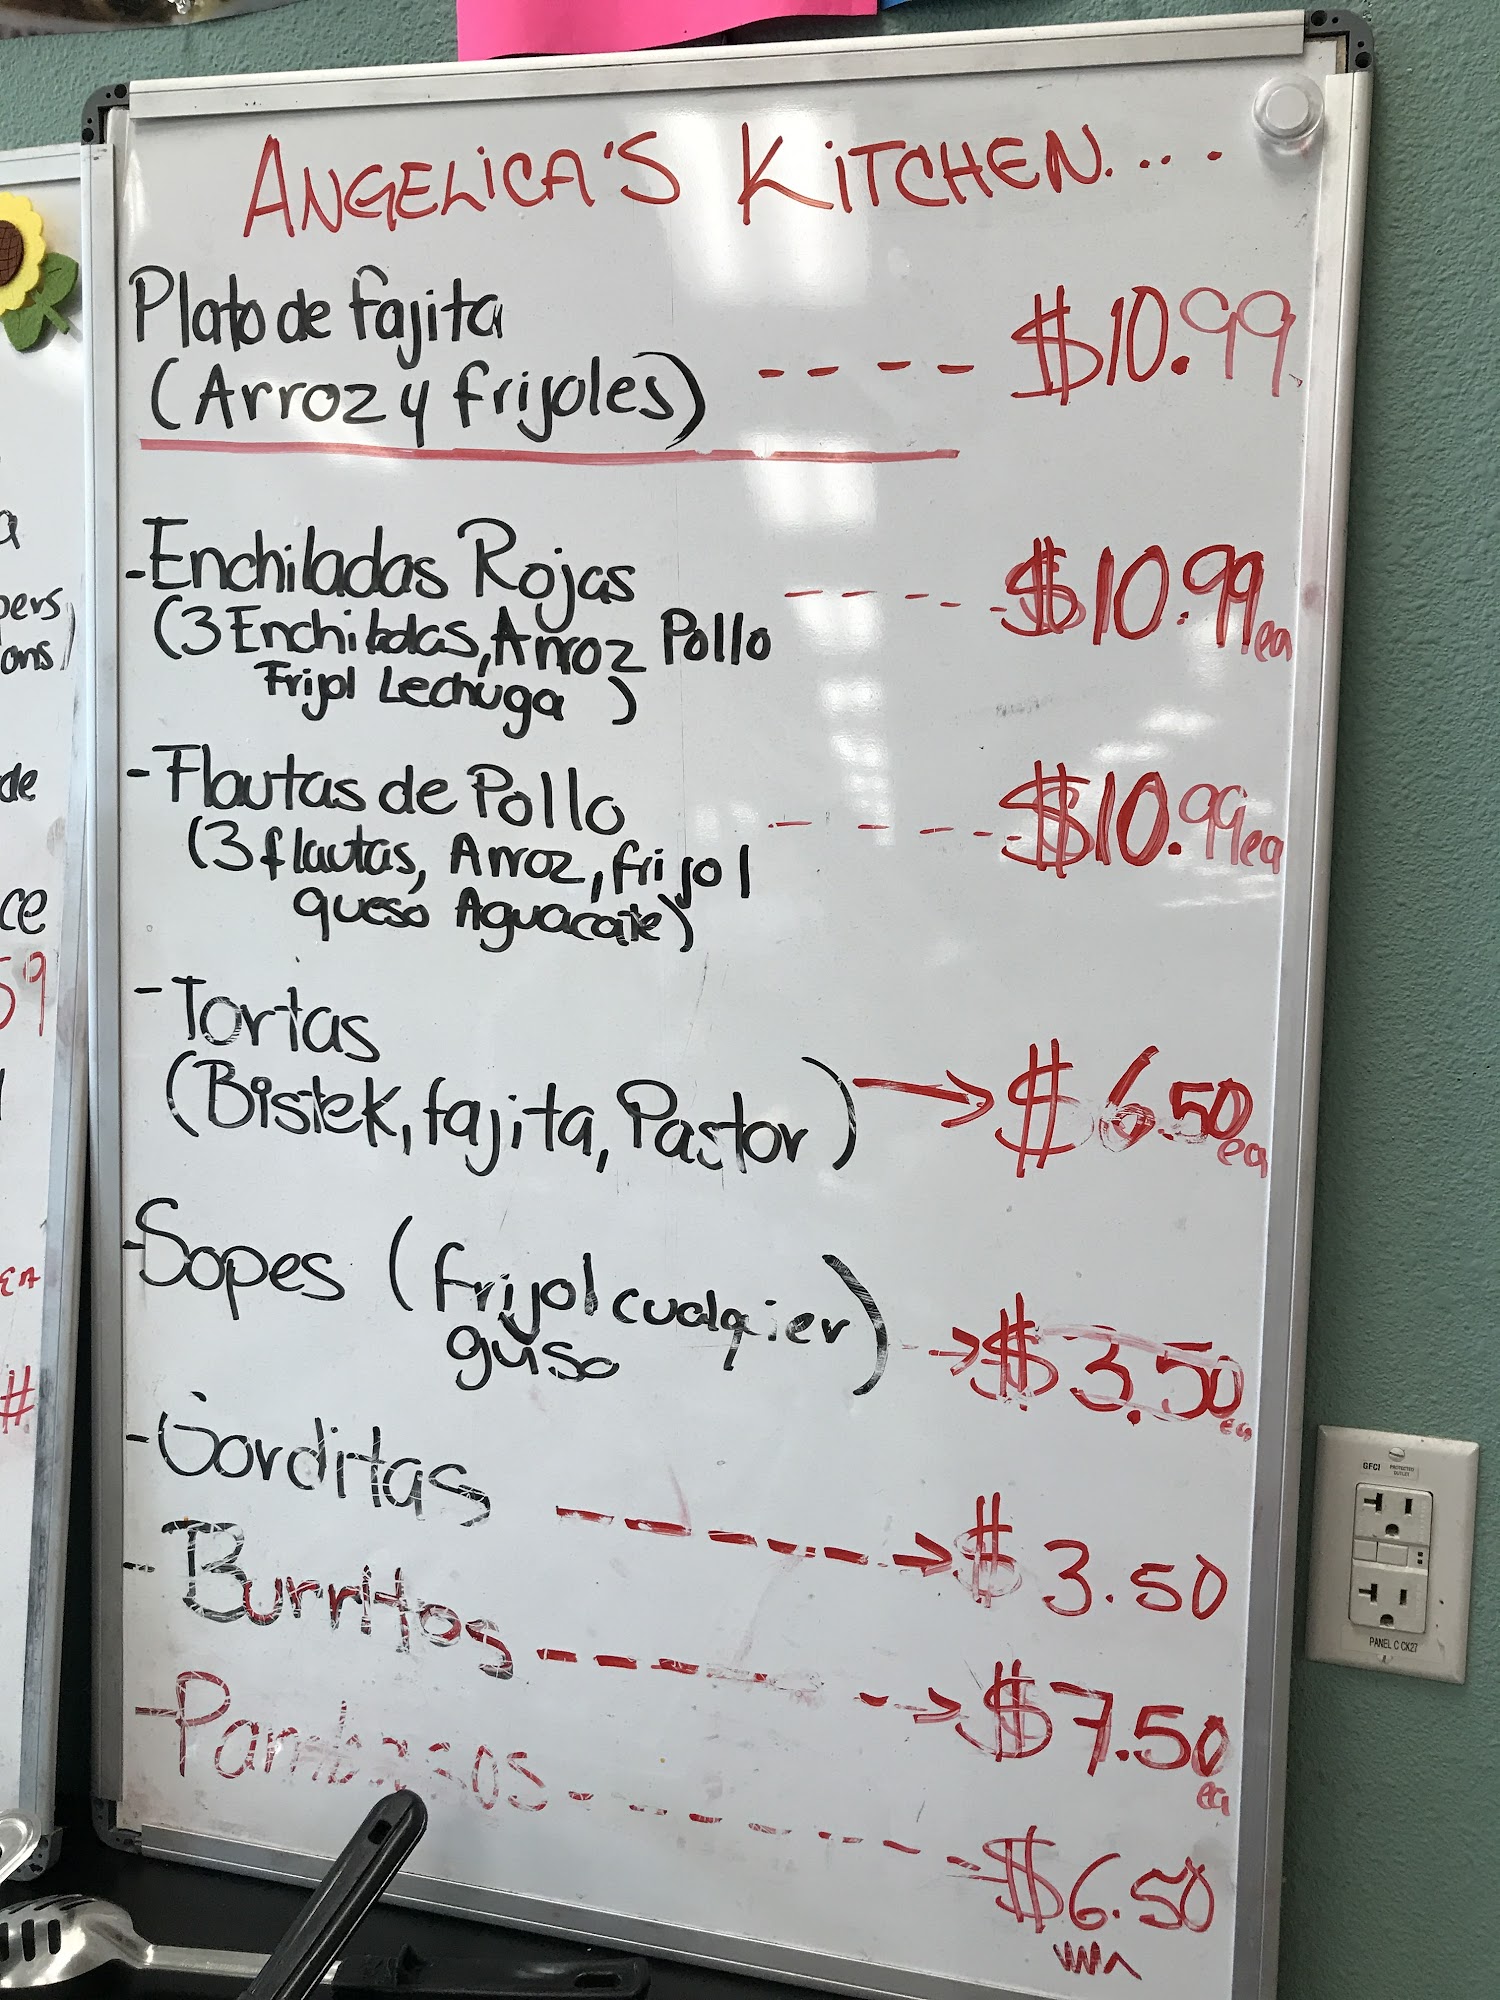 ANGELiCA'S KiTCHEN....
Plato de fajita
(Arroz y frijoles) ---- $10.99
-Enchiladas Rojas
(3 Enchiladas, Arroz Pollo ---- $10.99 ea
Frijol Lechuga )
-Flautas de Pollo
(3 flautas, Arroz, frijol ---- $10.99 ea
queso Aguacate)
-Tortas
(Bistek, fajita, Pastor) → $6.50 ea
-Sopes (frijol cualqier) --→ $3.50 ea
guiso
-Gorditas -----→ $3.50
-Burritos -----→ $7.50 ea
-Pambasos ------ $6.50
a
pers
ons)
de
ce
59
EA
#
GFCI PROTECTED
OUTLET
PANEL C CK27